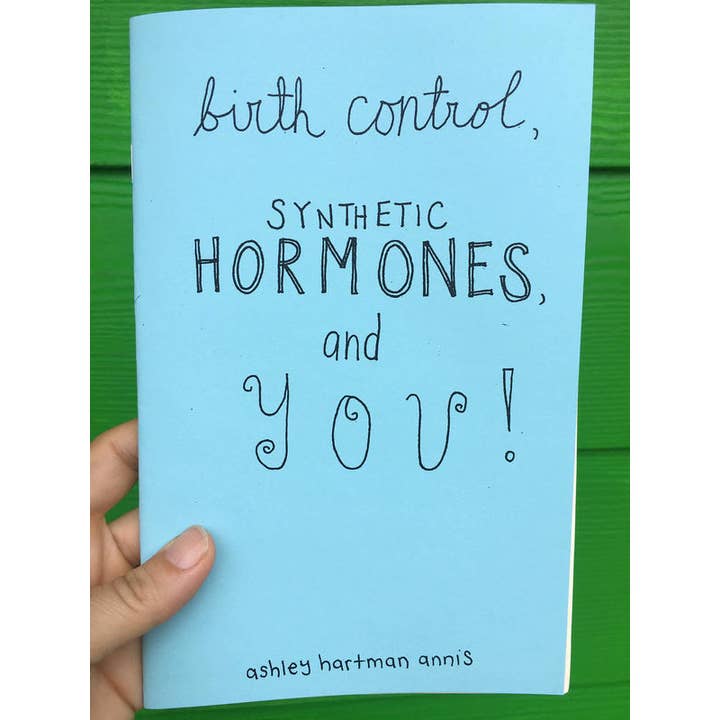 birth control,
SYNTHETIC
HORMONES,
and
YOU!
ashley hartman annis